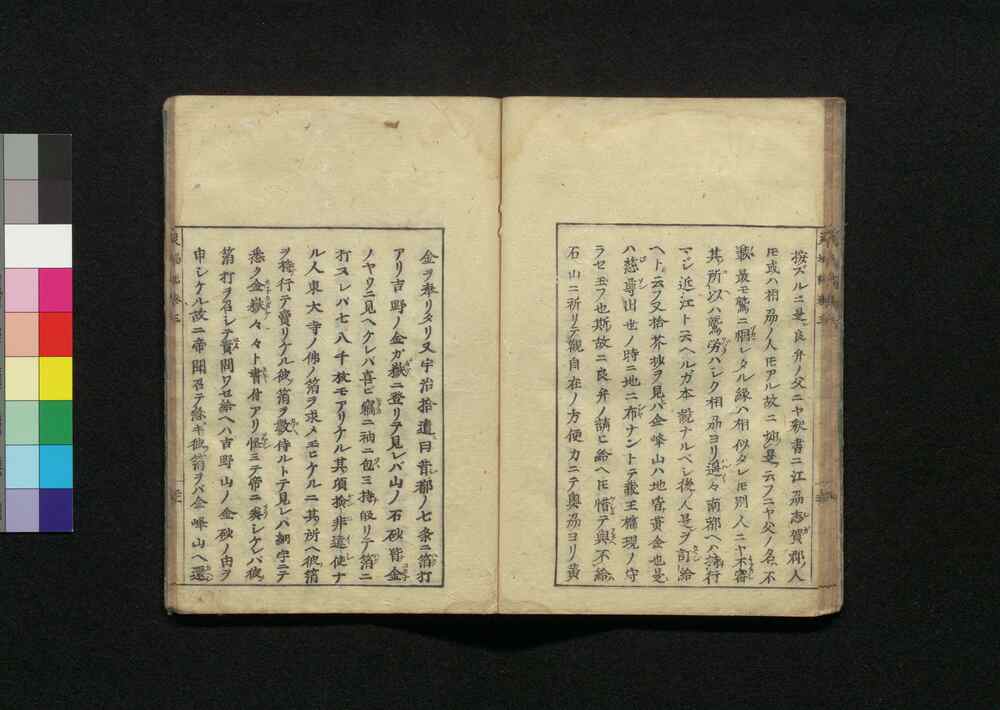 按ズルニ是良弁ノ父ニヤ釈書ニ江刕志賀郡人
𪜈或ハ相刕ノ人𪜈アル故ニ如是云フニヤ父ノ名不
載最モ鷲ニ𪜈別人ニヤ不審
其所以ハ鷲相刕ヨリ遥々南都ヘハ行
マシ近江ト云ヘルガ本説ナルベシ後人是ヲ訂給
ヘト云フ又拾芥抄ヲ見バ金峰山ハ地皆黄金也是
ハ慈尊出世ノ時ニ地ニ布ナントテ蔵王権現ノ守
ラセ玉フ也斯故ニ良弁ノ請ヒ給ヘ𪜈惜テ與不給
石山ニ祈リテ観自在ノ方便力ニテ奥刕ヨリ黄
金ヲ奉リタリ又宇治拾遺曰昔都ノ七条ニ箔打
アリ吉野ノ金ガ嶽ニ登リテ見レバ山ノ石砂皆金
ノヤウニ見ヘケレバ喜ビ竊ニ袖ニ包ミ持皈リテ箔ニ
打スレバ七八千枚モアリナル其項検非違使ナ
ル人東大寺ノ佛ノ箔ヲ求メモヒケルニ其所ヘ彼箔
ヲ行テ賣リケル彼箔ヲ数侍ルトテ見レバ細字ニテ
悉ク金嶽々々ト書付アリ怪ミテ帝ニ奏シケレバ彼
箔打ヲ召シテ責問ワセ給ヘハ吉野山ノ金砂ノ由ヲ
申シケル故ニ帝聞召テ彼箔ヲバ金峰山ヘ還